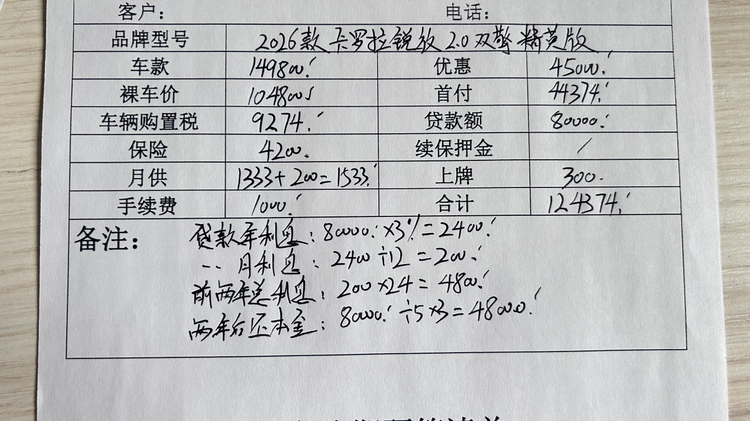 客户： 电话：
品牌型号 2026款卡罗拉锐放2.0双擎精英版
车款 149800 优惠 45000
裸车价 104800 首付 44374
车辆购置税 9274 贷款额 80000
保险 4200 续保押金 /
月供 1333+200=1533 上牌 300
手续费 1000 合计 124374
备注：
贷款年利息：80000×3%=2400
、、月利息：2400÷12=200
前两年总利息：200×24=4800
两年后还本金：80000÷5×3=48000